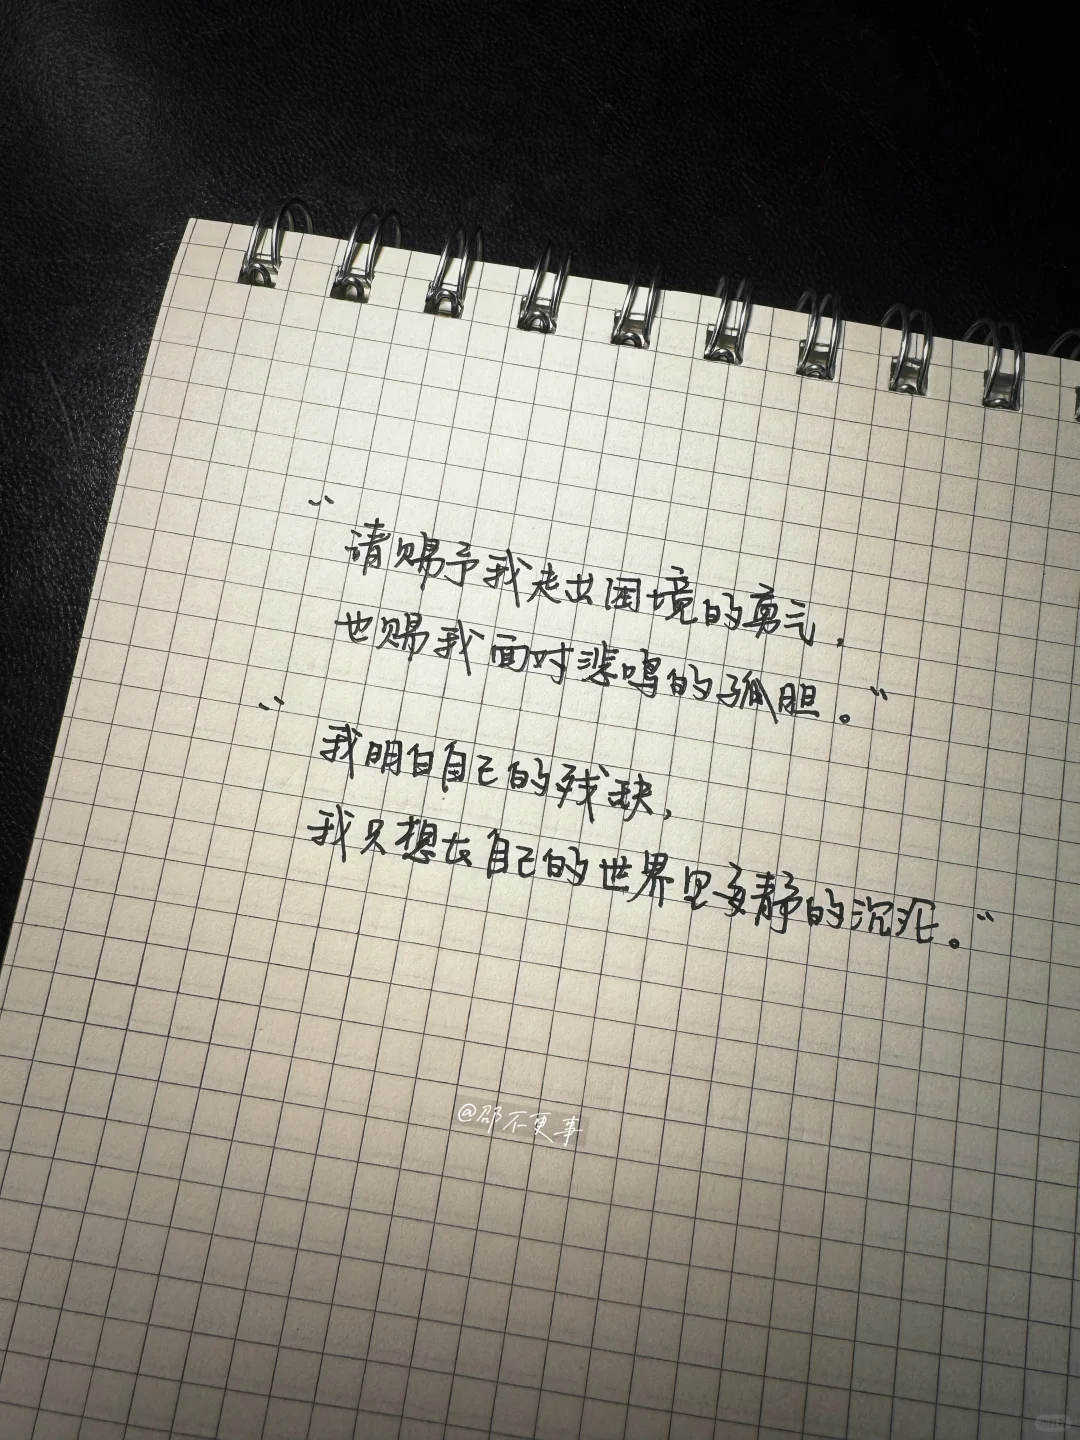 “请赐予我走出困境的勇气，
也赐我面对悲鸣的孤胆。”
“我明白自己的残缺，
我只想在自己的世界里安静的沉死。”
@邵不更事